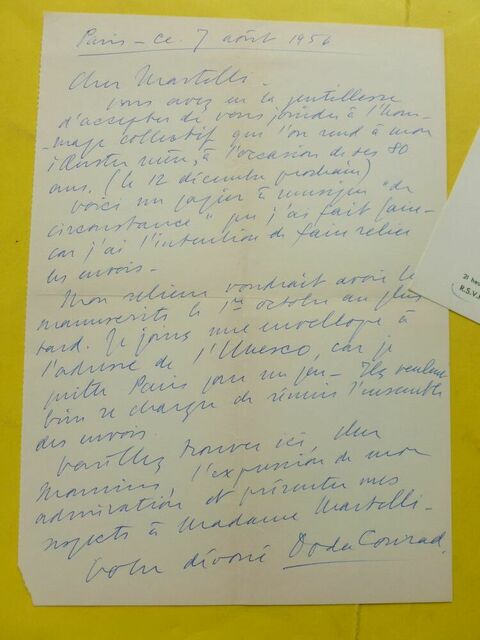 Paris – ce 7 août 1956
Cher Martelli –
Vous avez eu la gentillesse
d'accepter de vous joindre à l'hom-
-mage collectif que l'on rend à mon
illustre mère, à l'occasion de ses 80
ans. (le 12 décembre prochain)
Voici un papier à musique "de
circonstance" que j'ai fait faire –
car j'ai l'intention de faire relier
les envois –
Mon relieur voudrait avoir le
manuscrit le 1er octobre au plus
tard. Je joins une enveloppe à
l'adresse de l'Unesco, car je
quitte Paris pour un peu – Ils veulent
bien se charger de réunir l'ensemble
des envois.
Veuillez trouver ici, cher
Monsieur, l'expression de mon
admiration et présenter mes
respects à Madame Martelli –
Votre dévoué Doda Conrad.
21 heu
R.S.V.